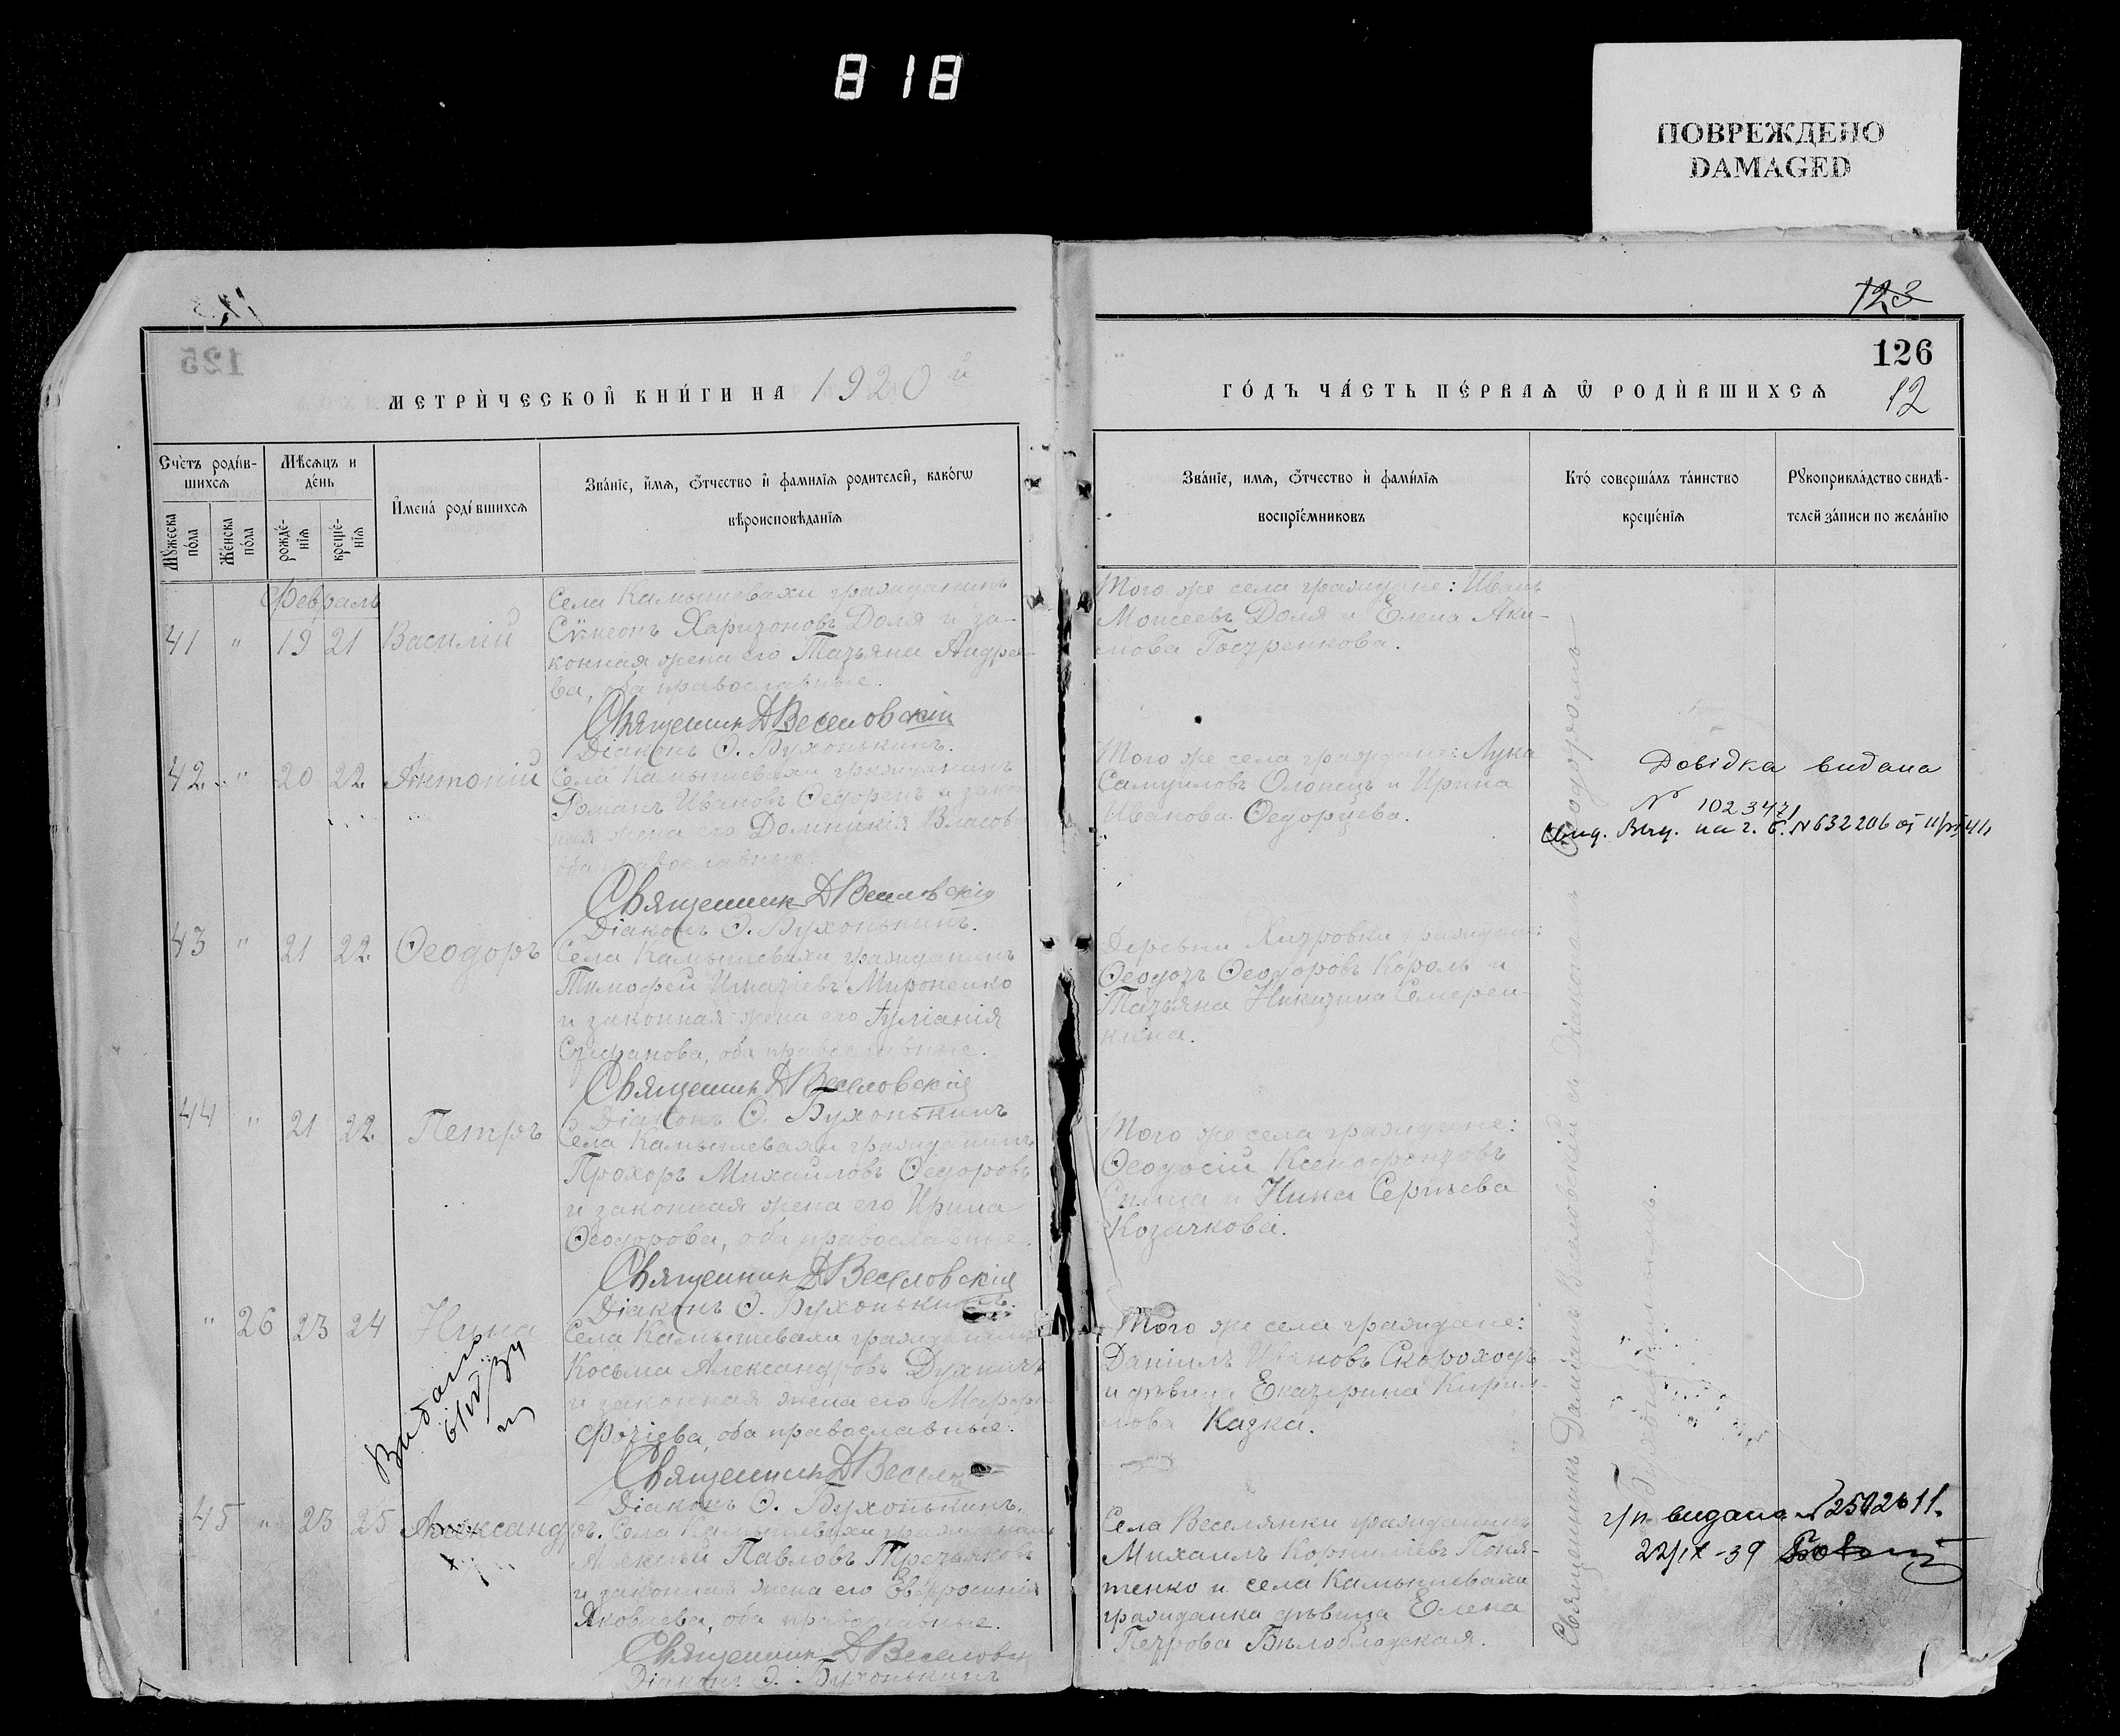 818
ПОВРЕЖДЕНО
DAMAGED
123
125
126
12
МЕТРИ́ЧЕСКОЙ КНИ́ГИ НА 1920 й
ГО́ДЪ ЧА́СТЬ ПЕ́РВАѦ Ѿ РОДИ́ВШИХСѦ
Сче́тъ роди́в-
шихсѧ
Мѣ́сѧцъ и
де́нь
Мꙋ́жеска по́ла
Же́нска по́ла
рожде́-
нїѧ
креще́-
нїѧ
И҆мена́ роди́вшихсѧ
Зва́нїе, и҆́мѧ, ѻ҆́тчество и҆ фами́лїѧ родителей, како́гѡ
вѣроисповѣданїѧ
Зва́нїе, имѧ, ѻ҆́тчество и҆ фами́лїѧ
воспрїе́мниковъ
Кто́ соверша́лъ та́инство
креще́нїѧ
Рꙋкоприкла́дство свидѣ́-
телей за́писи по жела́нїю
Февраль
41 " 19 21 Василій
Села Камышевахи гражданинъ
Сѵмеонъ Харитоновъ Доля и за-
конная жена его Татьяна Андрее-
ва, оба православные.
Священник Д Веселовскій
Діаконъ Ѳ. Бухонькинъ.
Того же села граждане: Иванъ
Моисеевъ Доля и Елена Аки-
мова
42. " 20 22 Антоній
Села Камышевахи гражданинъ
Романъ Ивановъ Ѳедорецъ и закон
ная жена его Домникія Власова
оба православные.
Священник Д Веселовскій
Діаконъ Ѳ. Бухонькинъ.
Того же села граждане: Лука
Самуиловъ Олонецъ и Ирина
Иванова Ѳедорцева.
Довідка видана
№ 102347
№ 632206
43 " 21 22 Ѳеодоръ
Села Камышевахи гражданинъ
Тимофей Игнатіевъ Мироненко
и законная жена его Іуліанія
Стефанова, оба православные.
Священник Д Веселовскій
Діаконъ Ѳ. Бухонькинъ
Деревни граждане:
Ѳеодотъ Ѳеодоровъ Король и
Татьяна Никитина Семерен-
кина.
44 " 21 22 Петръ
Села Камышевахи гражданинъ
Прохоръ Михаиловъ Ѳедоровъ
и законная жена его Ирина
Ѳеодорова, оба православные.
Священник Д Веселовскій
Діаконъ Ѳ. Бухонькинъ
Того же села граждане:
Ѳеодосій Ксенофонтовъ
и Нина Сергѣева
Козачкова.
" 26 23 24 Нина
Видано
Села Камышевахи гражданинъ
Косьма Александровъ
и законная жена его Марфа
Фотіева, оба православные.
Священник Д Весел
Діаконъ Ѳ. Бухонькинъ.
Того же села граждане:
Даніилъ Ивановъ Скороходъ
и дѣвица Екатерина Кирил-
лова Казка.
45 " 23 25 Александръ.
Села Камышевахи гражданинъ
Алексѣй Павловъ Третьяковъ
и законная жена его Евфросинія
Яковлева, оба православные.
Священник Д Веселовск
Діаконъ Ѳ. Бухонькинъ
Села Веселянки гражданинъ
Михаилъ Корниліевъ Поня-
тенко и села Камышевахи
гражданка дѣвица Елена
Петрова Бѣлоблодская.
видана № 2502611.
22/IX-39
Священникъ Даміанъ Веселовскій съ діакономъ Ѳеодоромъ
Бухонькинымъ.